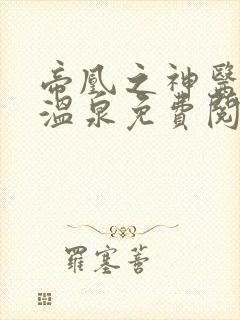 帝凰之神醫
溫泉免費閱
羅塞菩